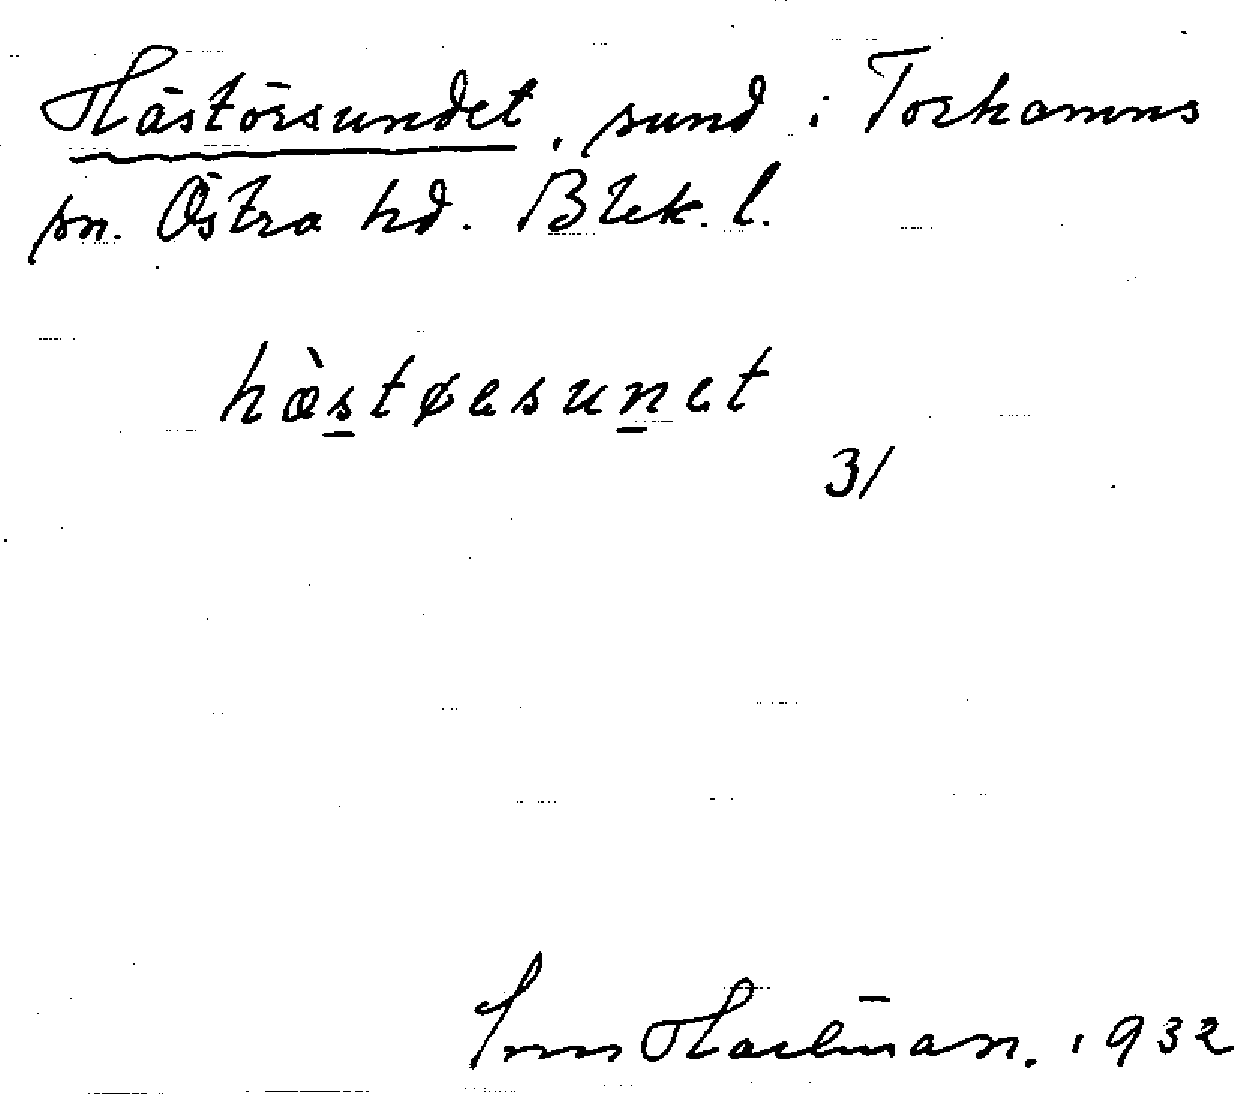 Hästörsundet, sund i Torhamns
sn. Östra hd. Blek. l.
hæ̀støɐsunet
3/
Hartman. 1932